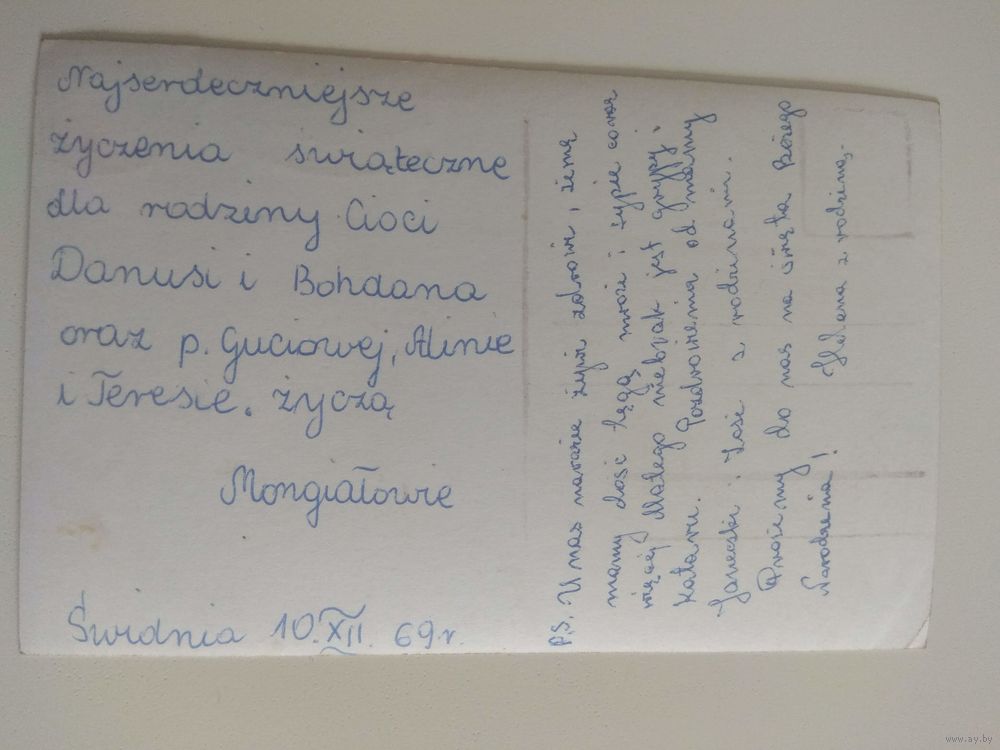 Najserdeczniejsze
życzenia świąteczne
dla rodziny Cioci
Danusi i Bohdana
oraz p. Guciowej, Alinie
i Teresie. życzą
Mongiałowie
Świdnia 10.XII. 69 r.
P.S. U nas narazie żyjem zdrowi, zimę
mamy dość tęgą mrozi i sypie coraz
więcej dlatego niebrak jest grypy i
kataru. Pozdrowienia od mamy
Janeczki. Zosi z rodzinami.
Prosimy do nas na święta Bożego
Narodzenia! Helena z rodziną.
www.ay.by